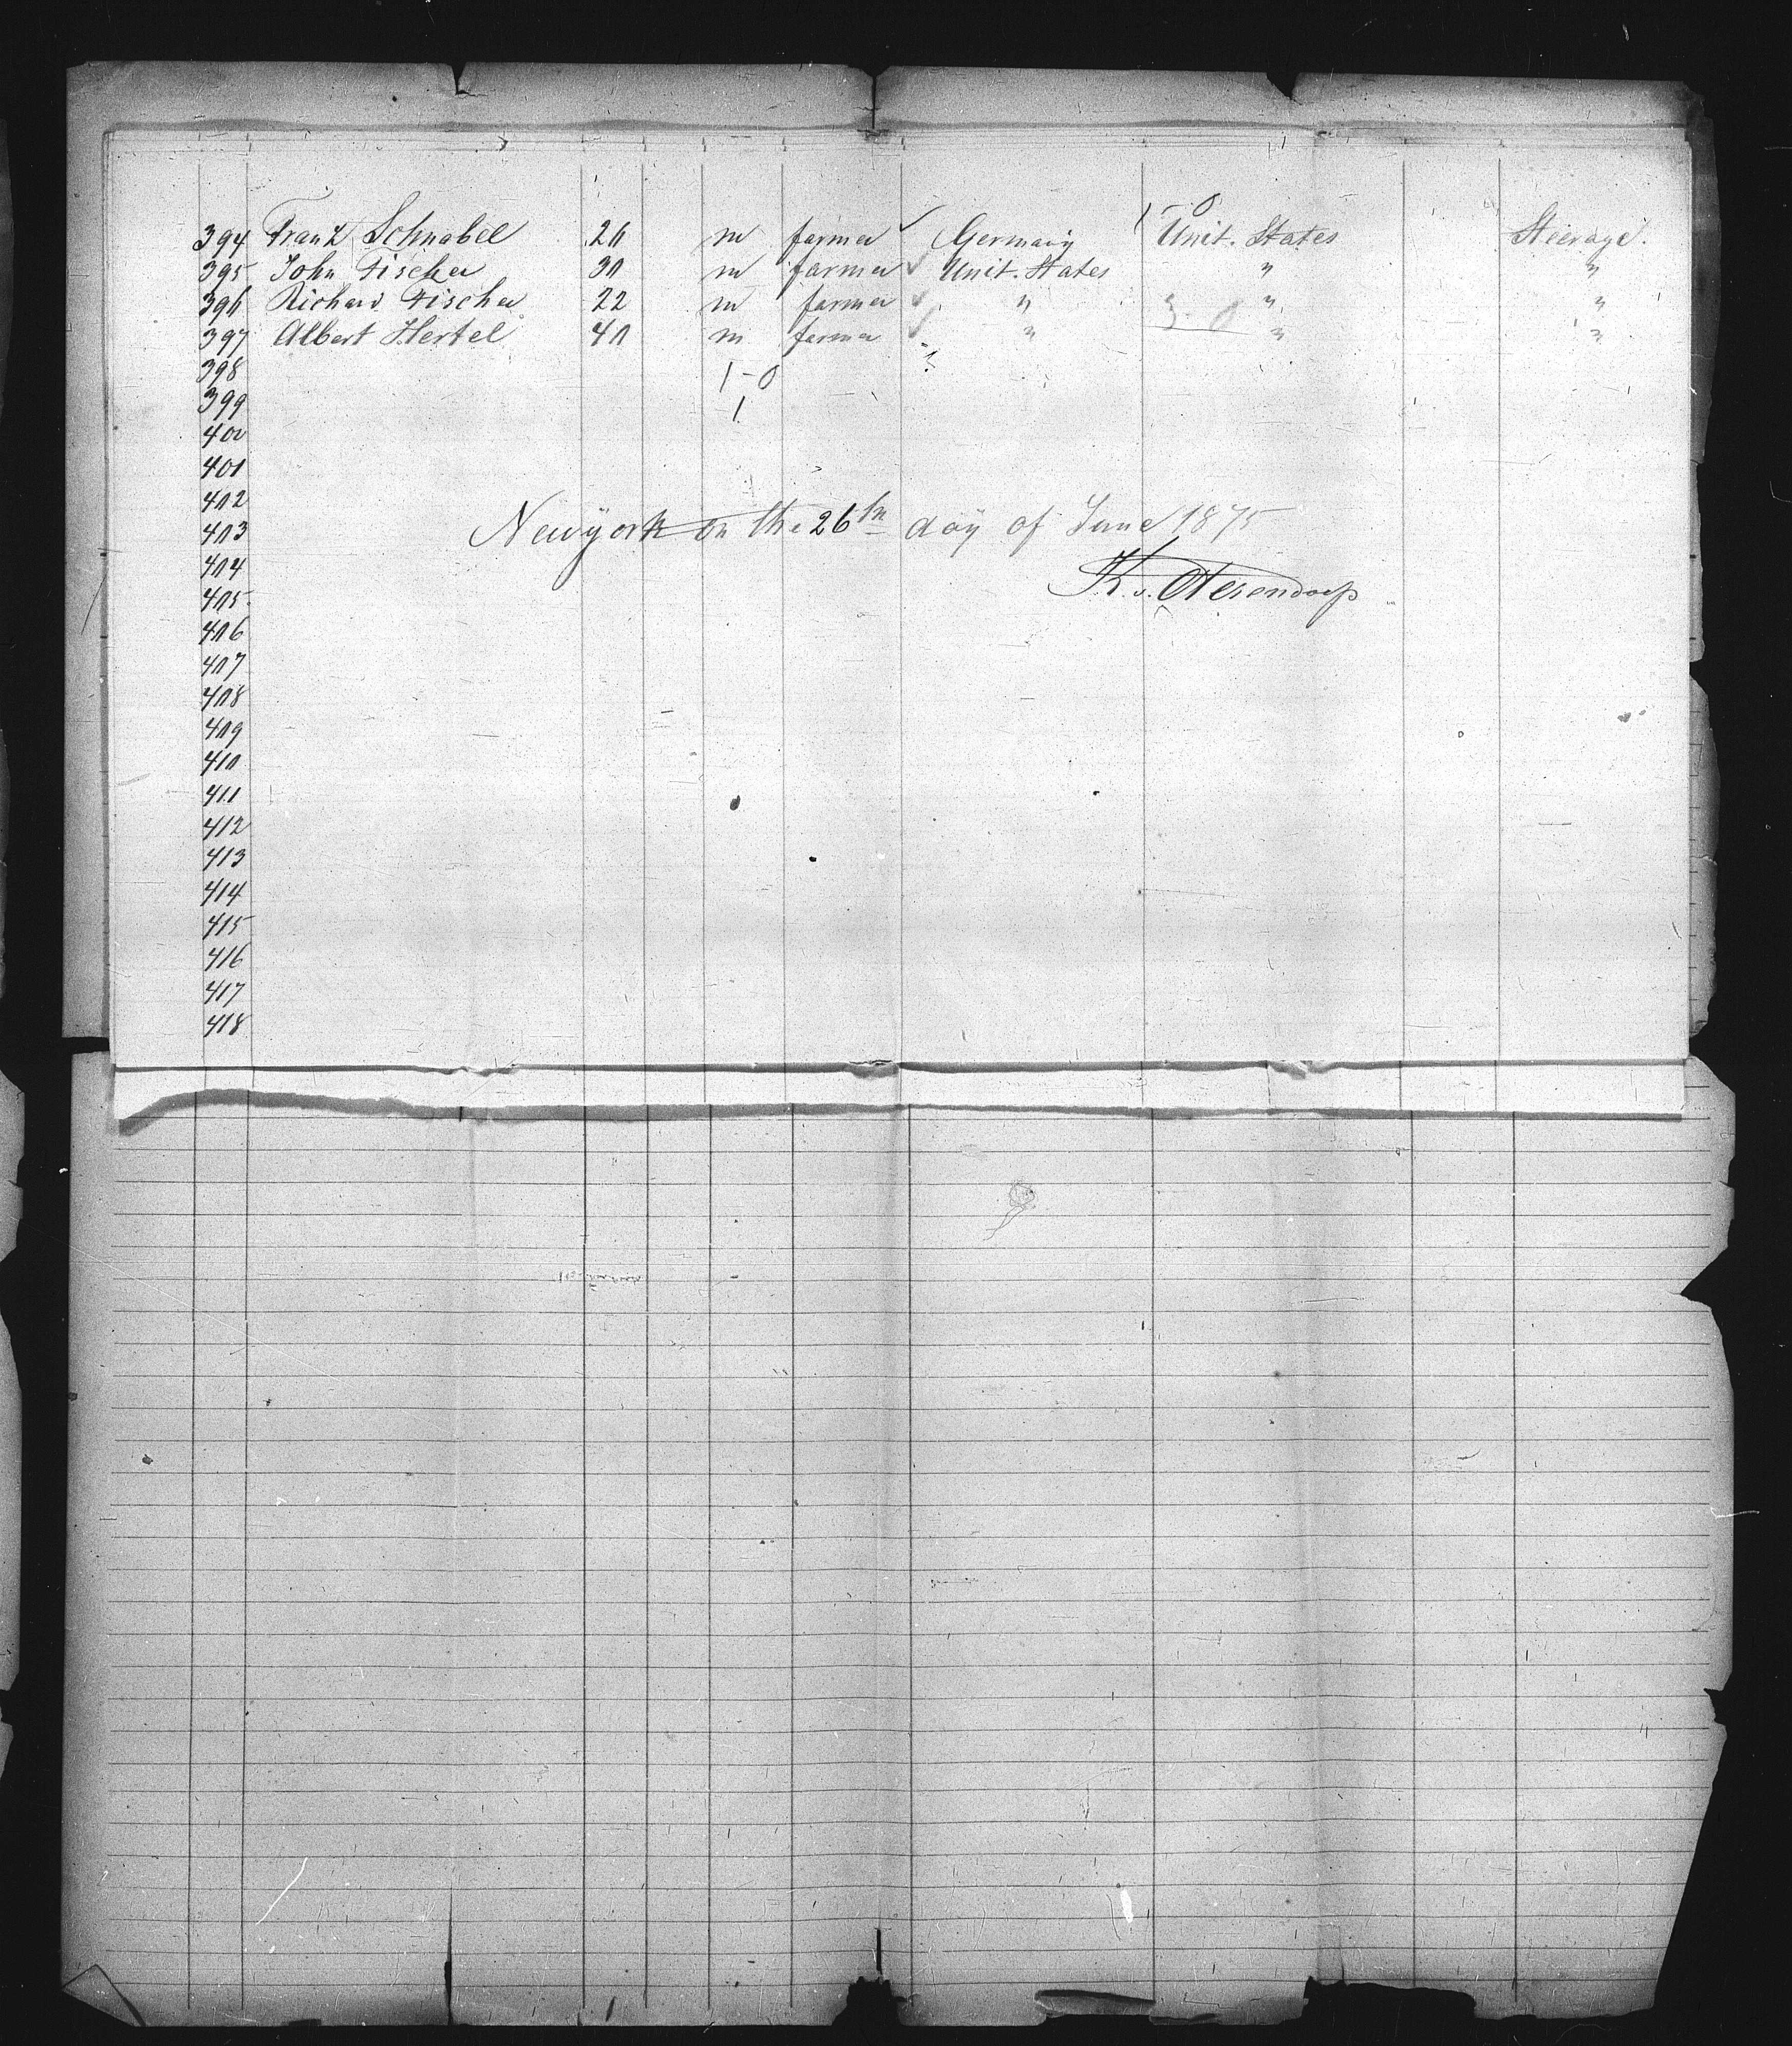 394 Franz Schnabel 26 m farmer ✓ Germany Unit. States Steerage.
395 John Fischer 30 m farmer ✓ Unit. States " "
396 Richard Fischer 22 m farmer ✓ " " "
397 Albert Hertel 40 m farmer ✓ " 3-0 " "
398 1-0
399 1
400
401
402
403 Newyork on the 26th day of June 1875
404
405 K. v. Oterendorp
406
407
408
409
410
411
412
413
414
415
416
417
418